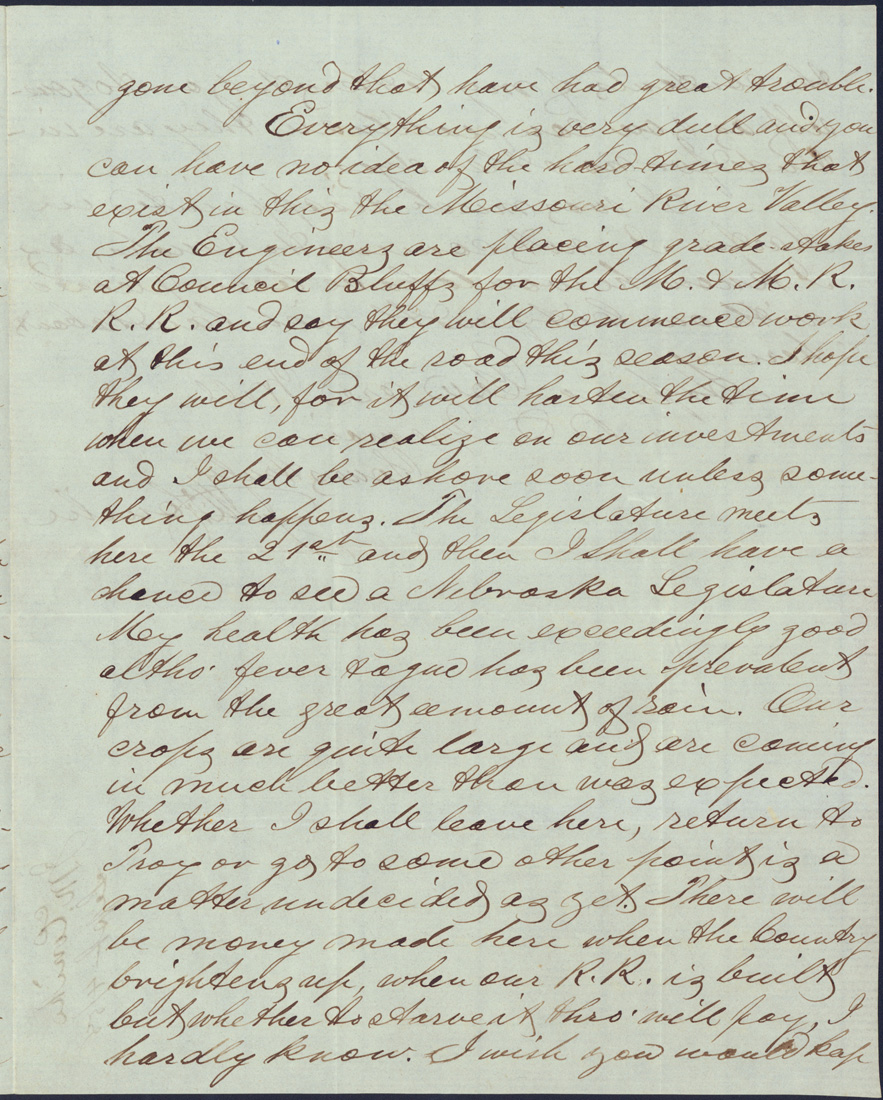 gone beyond that have had great trouble.
Everything is very dull and you
can have no idea of the hard times that
exist in this the Missouri River Valley.
The Engineers are placing grade-stakes
at Council Bluffs for the M. & M. R.
R. R. and say they will commence work
at this end of the road this season. I hope
they will, for it will hasten the time
when we can realize on our investments
and I shall be ashore soon unless some-
thing happens. The Legislature meets
here the 21st and then I shall have a
chance to see a Nebraska Legislature
My health has been exceedingly good
altho' fever & ague has been prevalent
from the great amount of rain. Our
crops are quite large and are coming
in much better than was expected.
Whether I shall leave here, return to
Troy or go to some other point is a
matter undecided as yet. There will
be money made here when the Country
brightens up, when our R. R. is built
but whether to starve it thro' will pay, I
hardly know. I wish you would keep